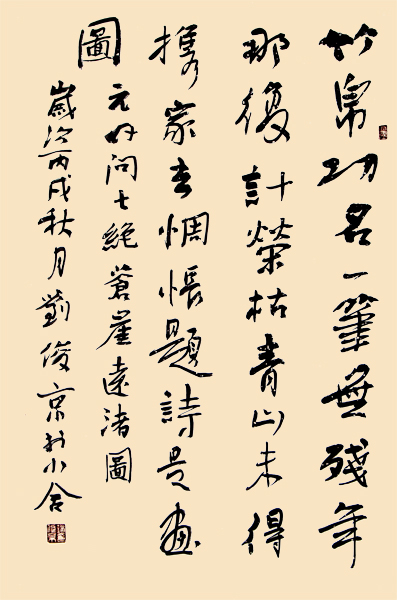 竹帛功名一筆無殘年
那復計榮枯青山未得
携家去惆悵題詩是畫
圖
元好問七絕蒼崖遠渚圖
歲次丙戌秋月劉俊京於小舍